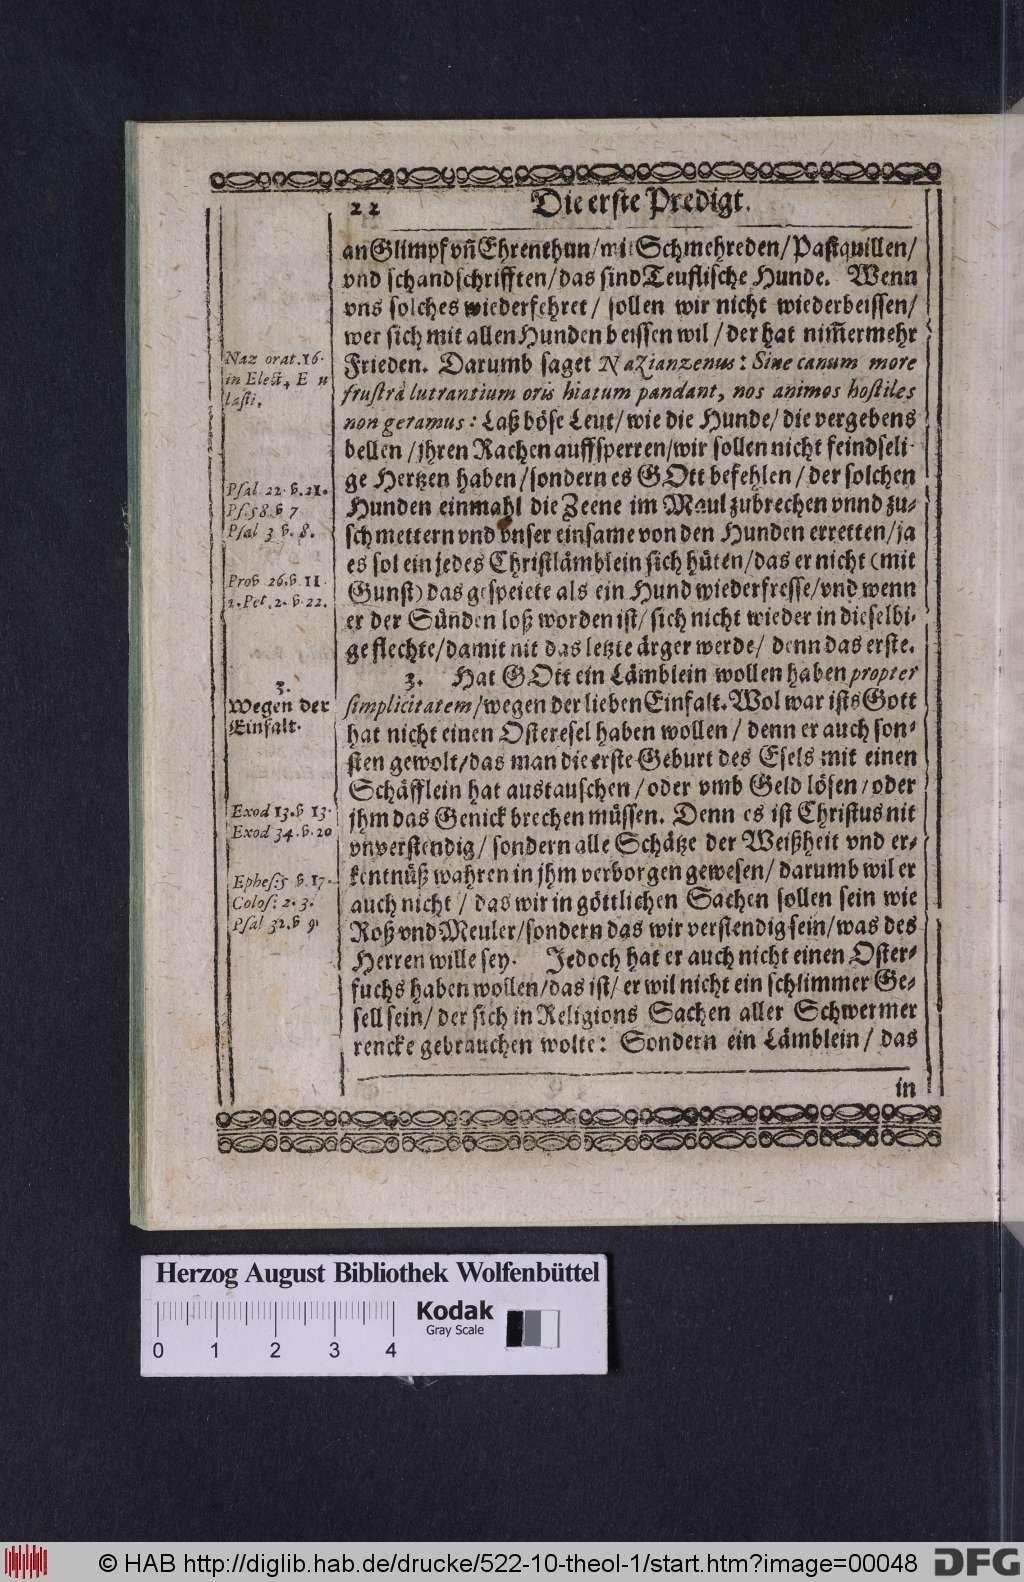 22 Die erste Predigt.
an Glimpf vñ Ehren thun/ mit Schmehreden/ Pasquillen/
vnd schandschrifften/ das sind Teuflische Hunde. Wenn
vns solches wiederfehret/ sollen wir nicht wiederbeissen/
wer sich mit allen Hunden beissen wil/ der hat nim̃ermehr
Frieden. Darumb saget Nazianzenus: Sine canum more
frustrà lutrantium oris hiatum pandant, nos animos hostiles
non geramus: Laß böse Leut/ wie die Hunde/ die vergebens
bellen/ jhren Rachen auffsperren/ wir sollen nicht feindseli-
ge Hertzen haben/ sondern es GOtt befehlen/ der solchen
Hunden einmahl die Zeene im Maul zubrechen vnnd zu-
schmettern vnd vnser einsame von den Hunden erretten/ ja
es sol ein jedes Christlämblein sich hüten/ das er nicht (mit
Gunst) das gespeiete als ein Hund wiederfresse/ vnd wenn
er der Sünden loß worden ist/ sich nicht wieder in dieselbi-
ge flechte/ damit nit das letzte ärger werde/ denn das erste.
3. Hat GOtt ein Lämblein wollen haben propter
simplicitatem/ wegen der lieben Einfalt. Wol war ists Gott
hat nicht einen Osteresel haben wollen/ denn er auch son-
sten gewolt/ das man die erste Geburt des Esels mit einen
Schäfflein hat austauschen/ oder vmb Geld lösen/ oder
jhm das Genick brechen müssen. Denn es ist Christus nit
vnverstendig/ sondern alle Schätze der Weißheit vnd er-
kentnüß wahren in jhm verborgen gewesen/ darumb wil er
auch nicht/ das wir in göttlichen Sachen sollen sein wie
Roß vnd Meuler/ sondern das wir verstendig sein/ was des
Herren wille sey. Jedoch hat er auch nicht einen Oster-
fuchs haben wollen/ das ist/ er wil nicht ein schlimmer Ge-
sell sein/ der sich in Religions Sachen aller Schwermer
rencke gebrauchen wolte: Sondern ein Lämblein/ das
in
Naz orat. 16.
in Elect, E u
lasti.
Psal 22. v. 21.
Ps. 58. v 7
Psal 3 v. 8.
Prov 26. v 11.
2. Pet. 2. v. 22.
3.
Wegen der
Einfalt.
Exod 13. v 13.
Exod 34. v. 20
Ephes: 5 v. 17.
Colos: 2. 3.
Psal 32. v 9.
Herzog August Bibliothek Wolfenbüttel
Kodak
Gray Scale
0 1 2 3 4
© HAB http://diglib.hab.de/drucke/522-10-theol-1/start.htm?image=00048
DFG